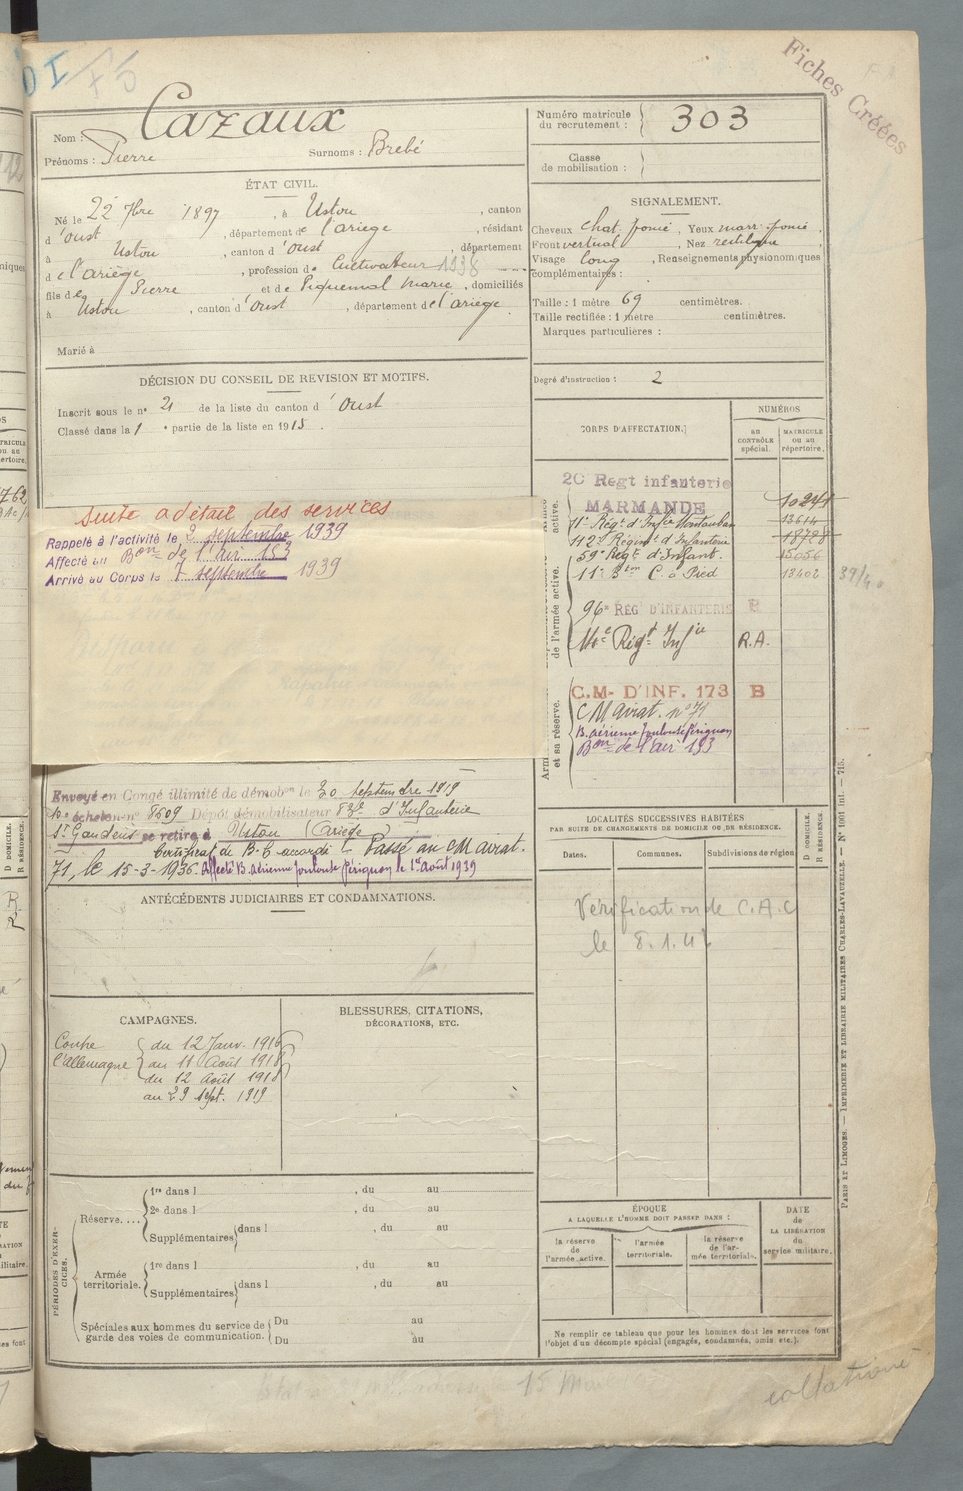 DI F5
Fiches Créées
Nom : Cazaux
Prénoms : Pierre Surnoms : Brebé
Numéro matricule du recrutement : 303
Classe de mobilisation :
ÉTAT CIVIL.
Né le 22 7bre 1897, à Ustou, canton
d'oust, département de l'ariège, résidant
à Ustou, canton d'oust, département
de l'ariège, profession de Cultivateur 1938
fils de Pierre et de Piquemal Marie, domiciliés
à Ustou, canton d'oust, département de l'ariège
Marié à
SIGNALEMENT.
Cheveux chat. foncé, Yeux marr. foncé,
Front vertical, Nez rectiligne
Visage long, Renseignements physionomiques
complémentaires :
Taille : 1 mètre 69 centimètres.
Taille rectifiée : 1 mètre centimètres.
Marques particulières :
Degré d'instruction : 2
DÉCISION DU CONSEIL DE REVISION ET MOTIFS.
Inscrit sous le n° 21 de la liste du canton d'oust
Classé dans la 1e partie de la liste en 1915.
CORPS D'AFFECTATION.
NUMÉROS
au CONTRÔLE spécial.
MATRICULE ou au répertoire.
20 Regt infanterie
MARMANDE
11e Régt d'Infie Montauban 13614
112e Régimt d'Infanterie 18788
59e Regt d'Infant. 15056
11e Bton C. à Pied 13402
39/40
96e REGt D'INFANTERIE R
14e Régt Infie R.A.
C.M- D'INF. 173 B
CM avrat. n° 71
B. aérienne Toulouse Pérignon
Bon de l'air 153
de l'armée active.
et sa réserve.
Suite a détail des services
Rappelé à l'activité le 2 septembre 1939
Affecté au Bon de l'air 153
Arrivé au Corps le 7 septembre 1939
Envoyé en Congé illimité de démobon le 30 septembre 1919
échelon n° 8609 Dépôt démobilisateur 83e d'Infanterie
St Gaudens se retire à Ustou (Ariège)
Certificat de B.C accordé Passé au CM avrat.
71, le 15-3-1936. Affecté B. aérienne Toulouse Pérignon le 1er Août 1939
ANTÉCÉDENTS JUDICIAIRES ET CONDAMNATIONS.
LOCALITÉS SUCCESSIVES HABITÉES
PAR SUITE DE CHANGEMENTS DE DOMICILE OU DE RÉSIDENCE.
Dates. Communes. Subdivisions de région.
D DOMICILE.
R RÉSIDENCE.
Vérification de C.A.C
le 8.1.42
CAMPAGNES.
Contre l'Allemagne
du 12 Janv. 1916
au 11 Août 1918
du 12 Août 1918
au 29 sept. 1919
BLESSURES, CITATIONS,
DÉCORATIONS, ETC.
PÉRIODES D'EXERCICES.
Réserve....
1re dans l , du au
2e dans l , du au
Supplémentaires dans l , du au
Armée territoriale.
1re dans l , du au
Supplémentaires dans l , du au
Spéciales aux hommes du service de garde des voies de communication.
Du au
Du au
ÉPOQUE
A LAQUELLE L'HOMME DOIT PASSER DANS :
la réserve de l'armée active.
l'armée territoriale.
la réserve de l'armée territoriale.
DATE de LA LIBÉRATION du service militaire.
Ne remplir ce tableau que pour les hommes dont les services font
l'objet d'un décompte spécial (engagés, condamnés, omis, etc.).
PARIS ET LIMOGES. — IMPRIMERIE ET LIBRAIRIE MILITAIRES CHARLES-LAVAUZELLE. — N° 1001 int. — 715.
collationné